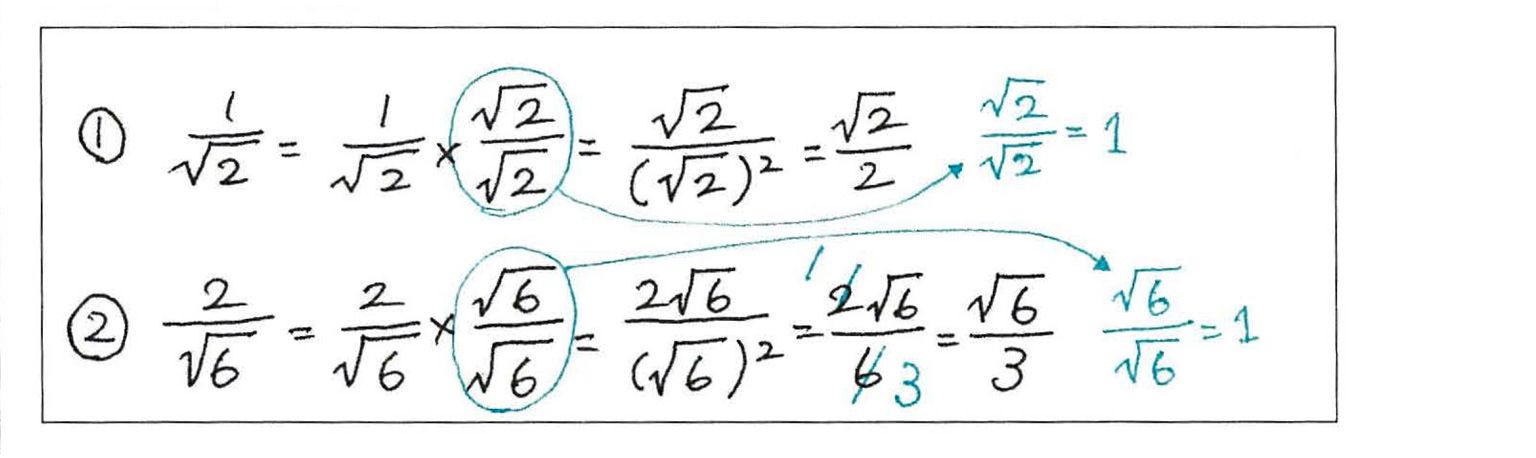 ① 1/√2 = 1/√2 × √2/√2 = √2/(√2)² = √2/2 √2/√2 = 1
② 2/√6 = 2/√6 × √6/√6 = 2√6/(√6)² = 1 2√6/6 3 = √6/3 √6/√6 = 1